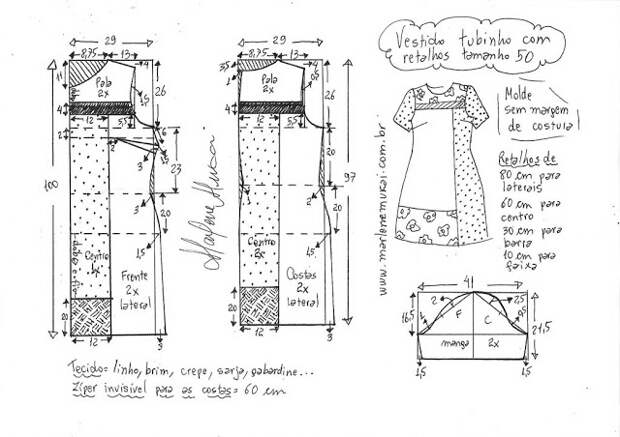 29
8,75
13
11
Pala
2x
4
1,5
26
12
5,5
2
2
6
3
3
23
20
1,5
100
Centro
1x
dobra e fio
Frente
2x
lateral
20
12
3
Marlene Mukai
29
8,75
13
3,5
Pala
2x
4
26
12
5,5
20
2
20
1,5
97
Centro
2x
Costas
2x
lateral
20
12
3
Vestido tubinho com
retalhos tamanho 50
Molde
sem margem
de costura
Retalhos de
80 cm para
laterais
60 cm para
centro
30 cm para
barra
10 cm para
faixa
www.marlenemukai.com.br
41
16,5
2
F
C
2,5
21,5
manga
2x
1,5
1,5
Tecido= linho, brim, crepe, sarja, gabardine...
Zíper invisível para as costas= 60 cm